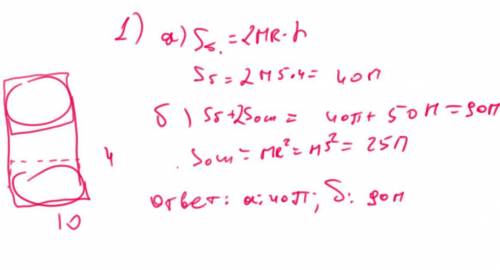 1) а) Sб. = 2πR·h
Sб = 2π5·4 = 40π
б) Sб+2Sосн = 40π + 50π = 90π
Sосн = πR² = π5² = 25π
4
Ответ: а: 40π; б: 90π
10